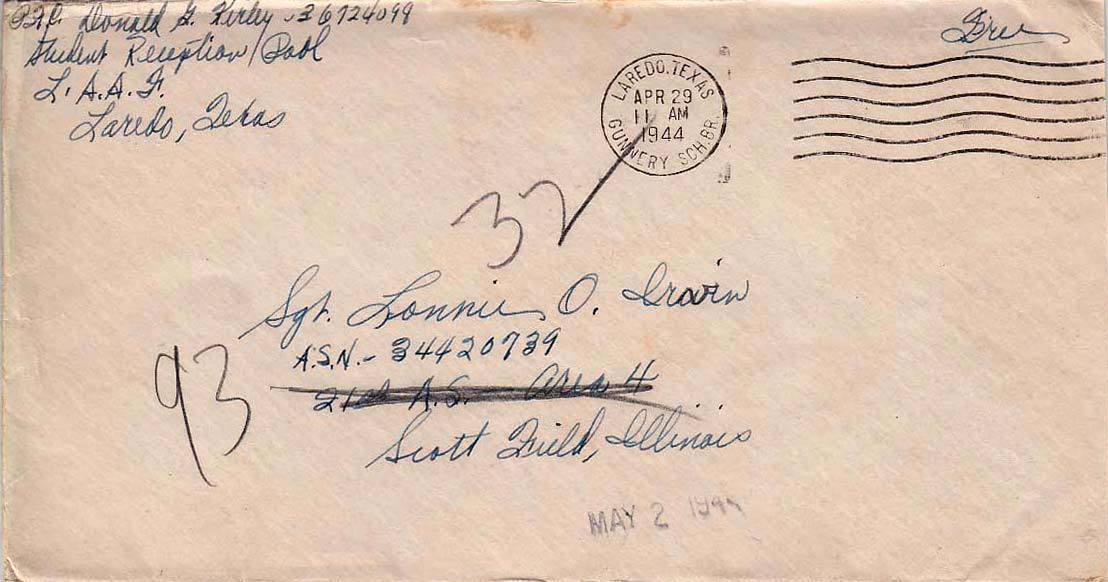 Pfc. Donald G. Kirley - 36724099
Student Reception Pool
L. A. A. F.
Laredo, Texas
Free
LAREDO, TEXAS
APR 29
11 AM
1944
GUNNERY SCH. BR.
32
Sgt. Lonnie O. Irvin
A.S.N. - 34420739
93
A.S. Area 4
Scott Field, Illinois
MAY 2 1944